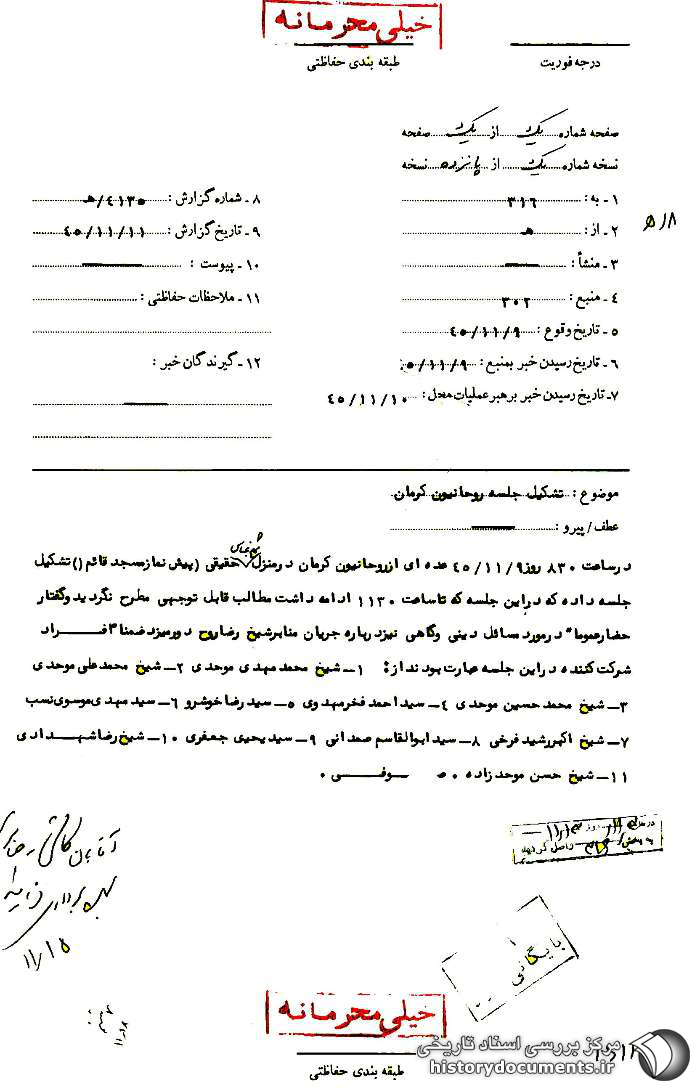 خیلی محرمانه
درجه فوریت
طبقه بندی حفاظتی
صفحه شماره یک از یک صفحه
نسخه شماره یک از پانزده نسخه
۱ـ به : ۳۱۶
۲ـ از : هـ
۳ـ منشأ :
۴ـ منبع : ۳۰۲
۵ـ تاریخ وقوع : ۴۵/۱۱/۹
۶ـ تاریخ رسیدن خبر بمنبع : ۴۵/۱۱/۹
۷ـ تاریخ رسیدن خبر برهبر عملیات محل : ۴۵/۱۱/۱۰
۸ـ شماره گزارش : ۴۱۳۵/هـ
۹ـ تاریخ گزارش : ۴۵/۱۱/۱۱
۱۰ـ پیوست :
۱۱ـ ملاحظات حفاظتی :
۱۲ـ گیرندگان خبر :
۸/هـ
موضوع : تشکیل جلسه روحانیون کرمان
عطف/پیرو :
درساعت ۸۳۰ روز ۴۵/۱۱/۹ عده ای ازروحانیون کرمان درمنزل حقیقی (پیش نمازمسجد قائم() تشکیل
جلسه داده که دراین جلسه که تاساعت ۱۱۳۰ ادامه داشت مطالب قابل توجهی مطرح نگردید وگفتار
حضارعموما" درمورد مسائل دینی وگاهی نیزدرباره جریان منابرشیخ رضاروح دورمیزد ضمنا" افـــراد
شرکت کننده دراین جلسه عبارت بودند از : ۱ـ شیخ محمد مهدی موحدی ۲ـ شیخ محمدعلی موحدی
۳ـ شیخ محمد حسین موحدی ۴ـ سید احمد فخرمهدوی ۵ـ سید رضا خوشرو ۶ـ سید مهدی موسوی نسب
۷ـ شیخ اکبررشید فرخی ۸ـ سید ابوالقاسم صمدانی ۹ـ سید یحیی جعفری ۱۰ـ شیخ رضا شهدادی
۱۱ـ شیخ حسن موحدزاده ۰ ص ســوفــــی ۰
آقایان
بهره برداری
۱۱/۱۵
بایگانی
۱۱/۸
خیلی محرمانه
طبقه بندی حفاظتی
مرکز بررسی اسناد تاریخی
historydocuments.ir